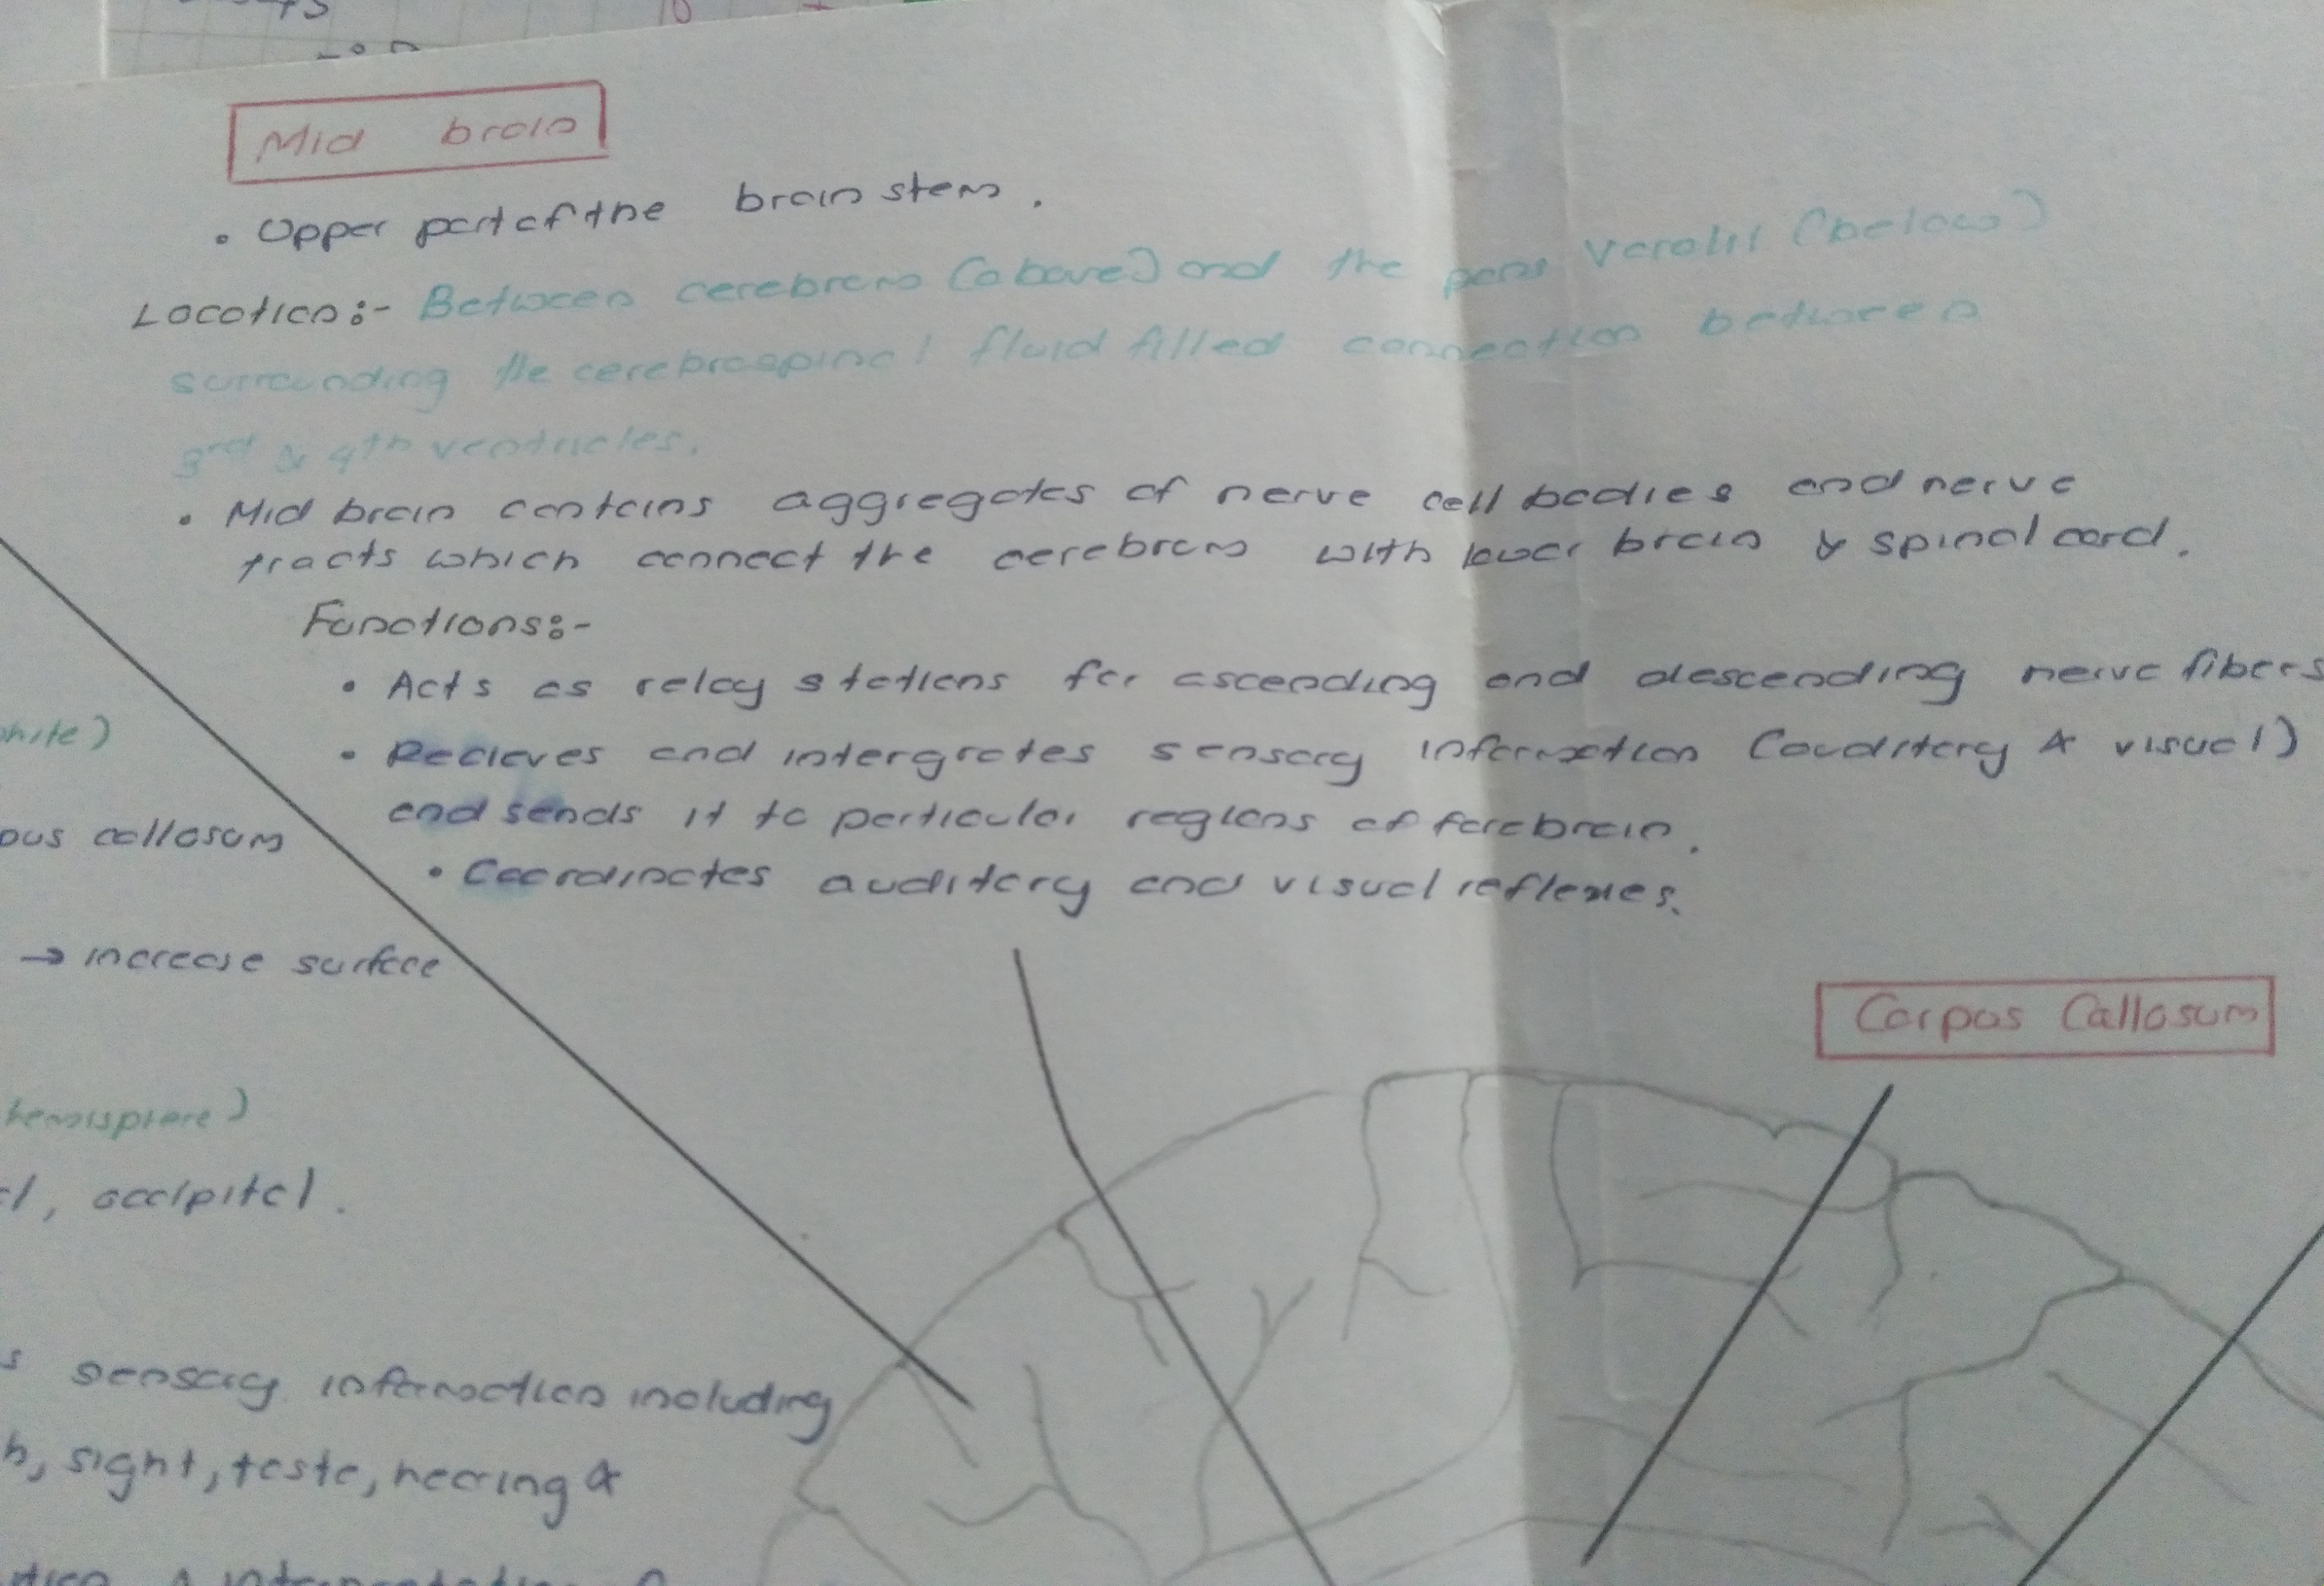 Mid brain
• Upper part of the brain stem.
Location:- Between cerebrum (above) and the pons Varolii (below)
surrounding the cerebrospinal fluid filled connection between
3rd & 4th ventricles.
• Mid brain contains aggregates of nerve cell bodies and nerve
tracts which connect the cerebrum with lower brain & spinal cord.
Functions:-
• Acts as relay stations for ascending and descending nerve fibers
• Recieves and intergrates sensory information (auditory & visual)
and sends it to particular regions of forebrain.
• Coordinates auditory and visual reflexes.
callosum
→ increase surface
Corpus Callosum
hemisphere)
, occipital.
sensory information including
, sight, taste, hearing &